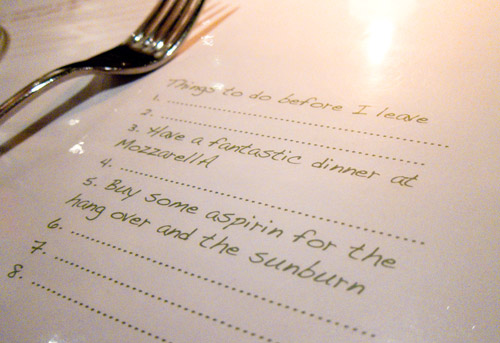 Things to do before I leave
1.
2.
3. Have a fantastic dinner at
MozzarellA
4.
5. Buy some aspirin for the
hang over and the sunburn
6.
7.
8.